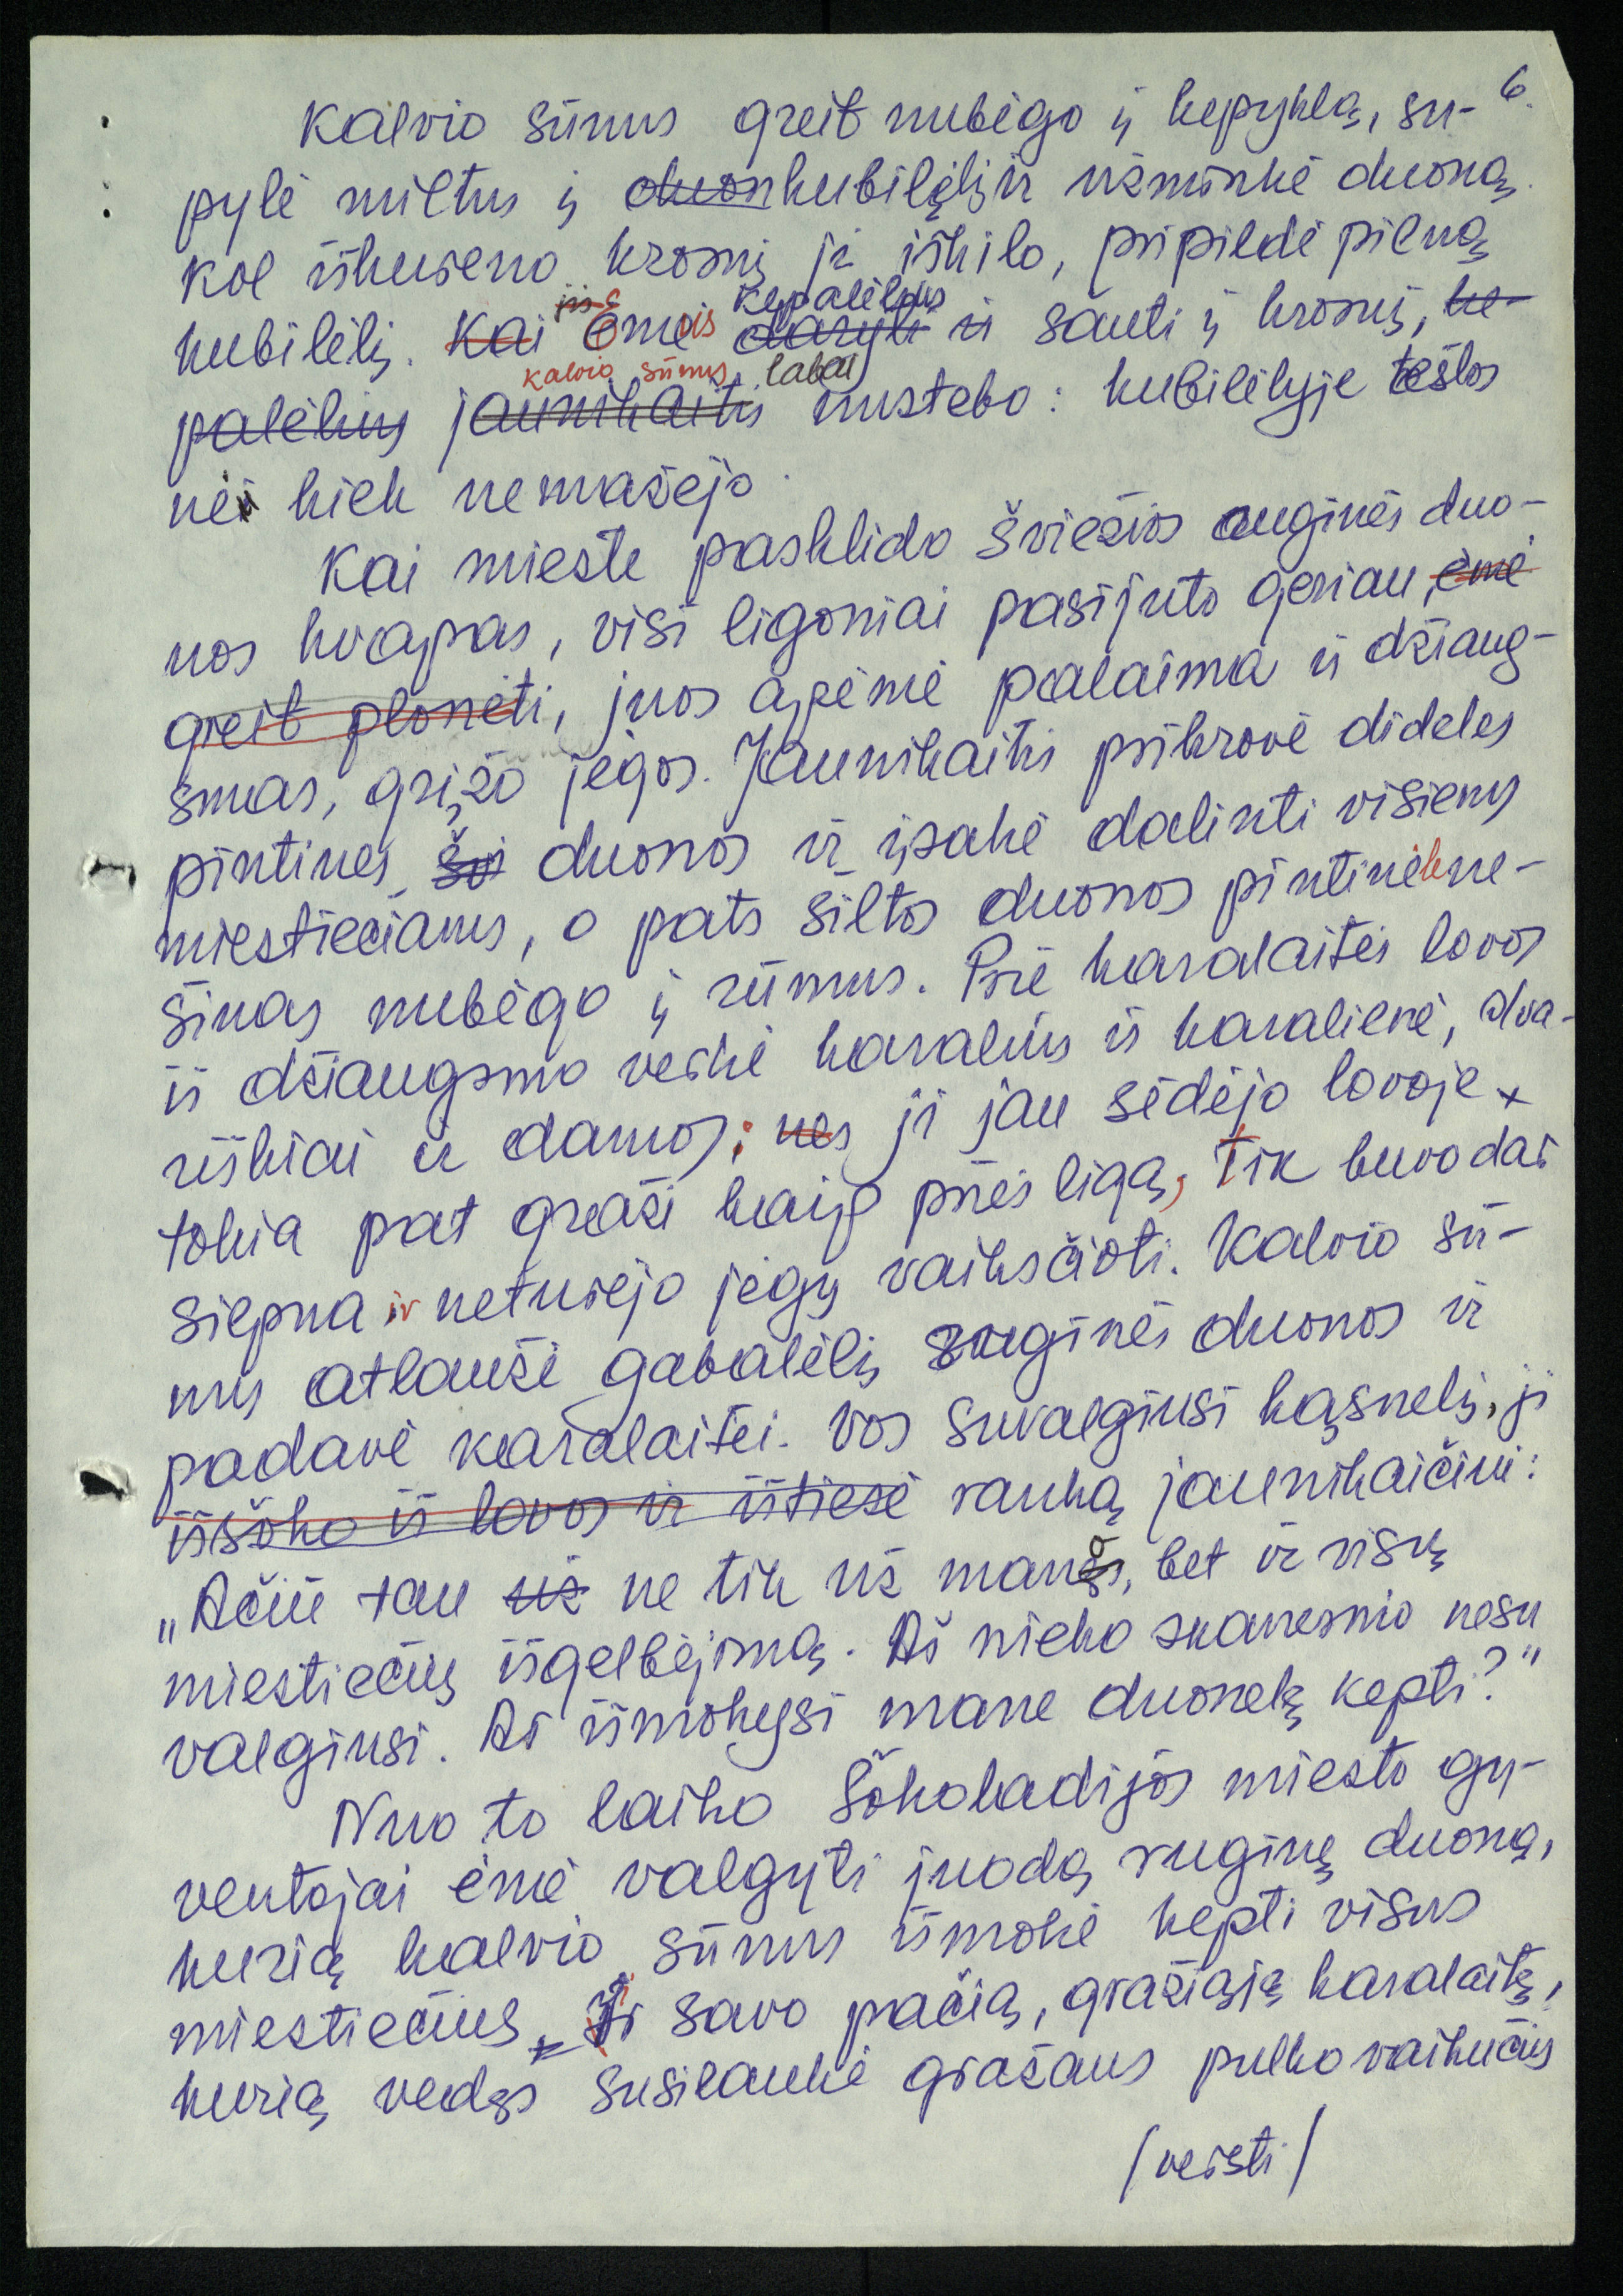 6.
Kalvio sūnus greit nubėgo į kepyklą, su-
pylė miltus į duon kubilėlį ir užminkė duoną.
Kol iškūreno krosnį ji iškilo, pripildė pilną
kubilėlį. Kai ėmė jis kepalėlius daryti ir šauti į krosnį, ke-
palėlius jaunikaitis kalvio sūnus labai nustebo: kubilėlyje tešlos
nei kiek nemažėjo.
Kai mieste pasklido šviežios ruginės duo-
nos kvapas, visi ligoniai pasijuto geriau, ėmė
greit plonėti, juos apėmė palaima ir džiaug-
smas, grįžo jėgos. Jaunikaitis prikrovė dideles
pintines švi duonos ir įsakė dalinti visiems
miestiečiams, o pats šiltos duonos pintinėle ne-
šinas nubėgo į rūmus. Prie karalaitės lovos
iš džiaugsmo verkė karalius ir karalienė, dva-
riškiai ir damos: nes ji jau sėdėjo lovoje
tokia pat graži kaip prieš ligą, Tik buvo dar
silpna ir neturėjo jėgų vaikščioti. Kalvio sū-
nus atlaužė gabalėlį ruginės duonos ir
padavė karalaitei. Vos suvalgiusi kąsnelį, ji
iššoko iš lovos ir ištiesė ranką jaunikaičiui:
„Ačiū tau už ne tik už mano, bet ir visų
miestiečių išgelbėjimą. Aš nieko skanesnio nesu
valgiusi. Ar išmokysi mane duonelę kepti?"
Nuo to laiko Šokoladijos miesto gy-
ventojai ėmė valgyti juodą ruginę duoną,
kurią kalvio sūnus išmokė kepti visus
miestiečius Ir savo pačią, gražiąją karalaitę,
kurią vedęs susilaukė gražaus pulko vaikučių
/versti/